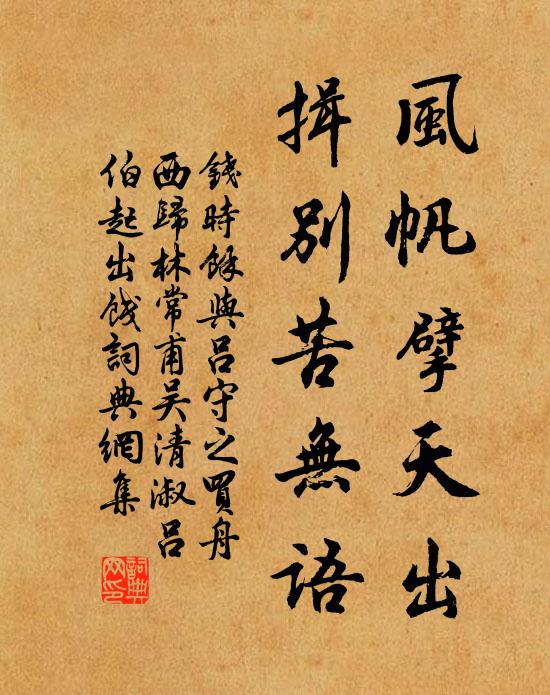 風帆擘天出
揖別苦無語
錢時余與呂守之買舟
西歸林常甫吳清淑呂
伯起出餞詞典網集
詞典
网印